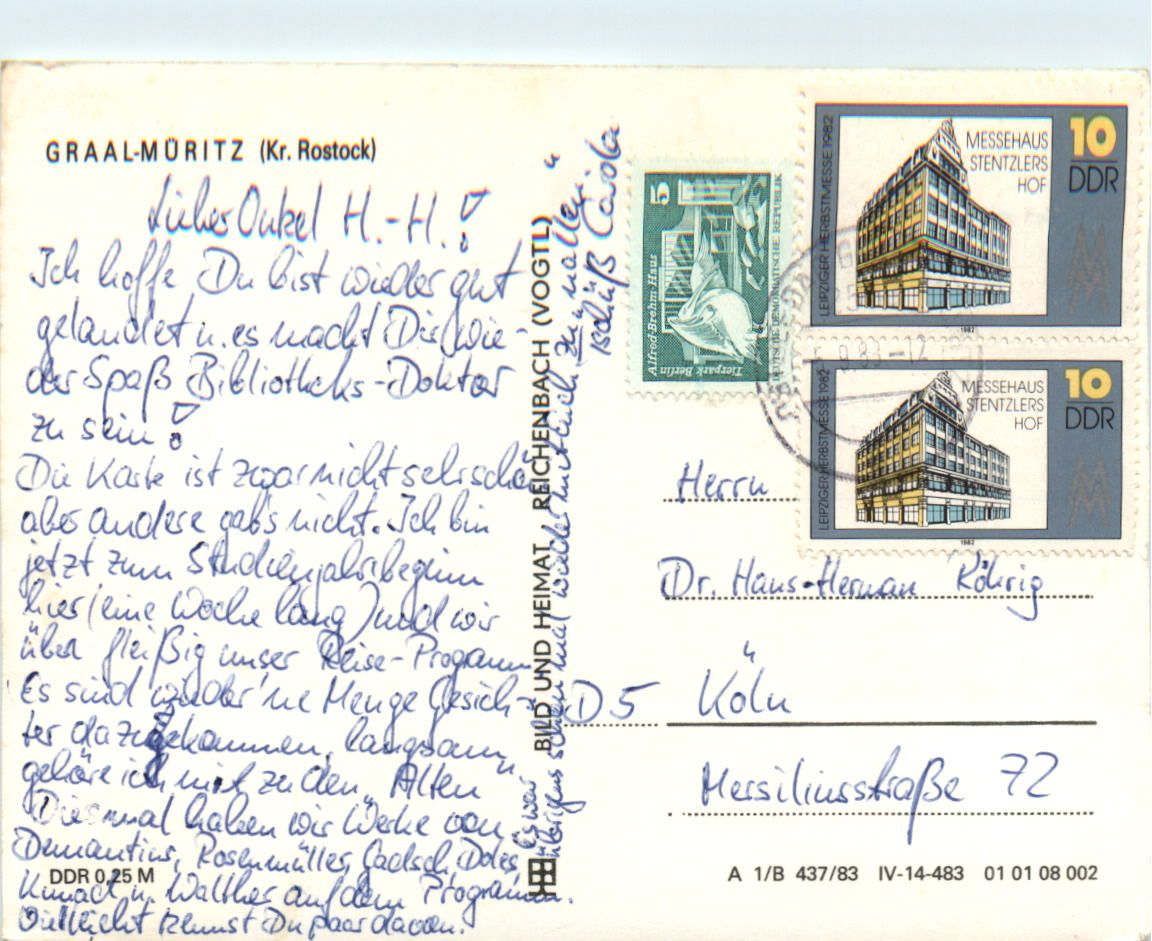 GRAAL-MÜRITZ (Kr. Rostock)
Lieber Onkel H.-H.!
Ich hoffe Du bist wieder gut
gelandet u. es macht Dir wie-
der Spaß Bibliotheks-Doktor
zu sein!
Die Karte ist zwar nicht sehr schön
aber andere gab's nicht. Ich bin
jetzt zum Studienjahrbeginn
hier (eine Woche lang) und wir
üben fleißig unser Reise-Programm
Es sind wieder 'ne Menge Gesich-
ter dazugekommen, langsam
gehöre ich mit zu den "Alten
Diesmal haben wir Werke von
Demantius, Rosenmüller, Doles,
Kunad u. Walther auf dem Programm.
Vielleicht kennst Du paar davon.
Es war
übrigens schön mal wieder mit Euch "zu
Tschüß Carola
DDR 0,25 M
BILD UND HEIMAT REICHENBACH (VOGTL)
5
Alfred-Brehm-Haus
Tierpark Berlin
DEUTSCHE DEMOKRATISCHE REPUBLIK
LEIPZIGER HERBSTMESSE 1982
MESSEHAUS
STENTZLERS
HOF
10
DDR
1982
LEIPZIGER HERBSTMESSE 1982
MESSEHAUS
STENTZLERS
HOF
10
DDR
1982
9.83-12
Herrn
Dr. Hans-Herman Röhrig
D5 Köln
Mersiliusstraße 72
A 1/B 437/83 IV-14-483 01 01 08 002